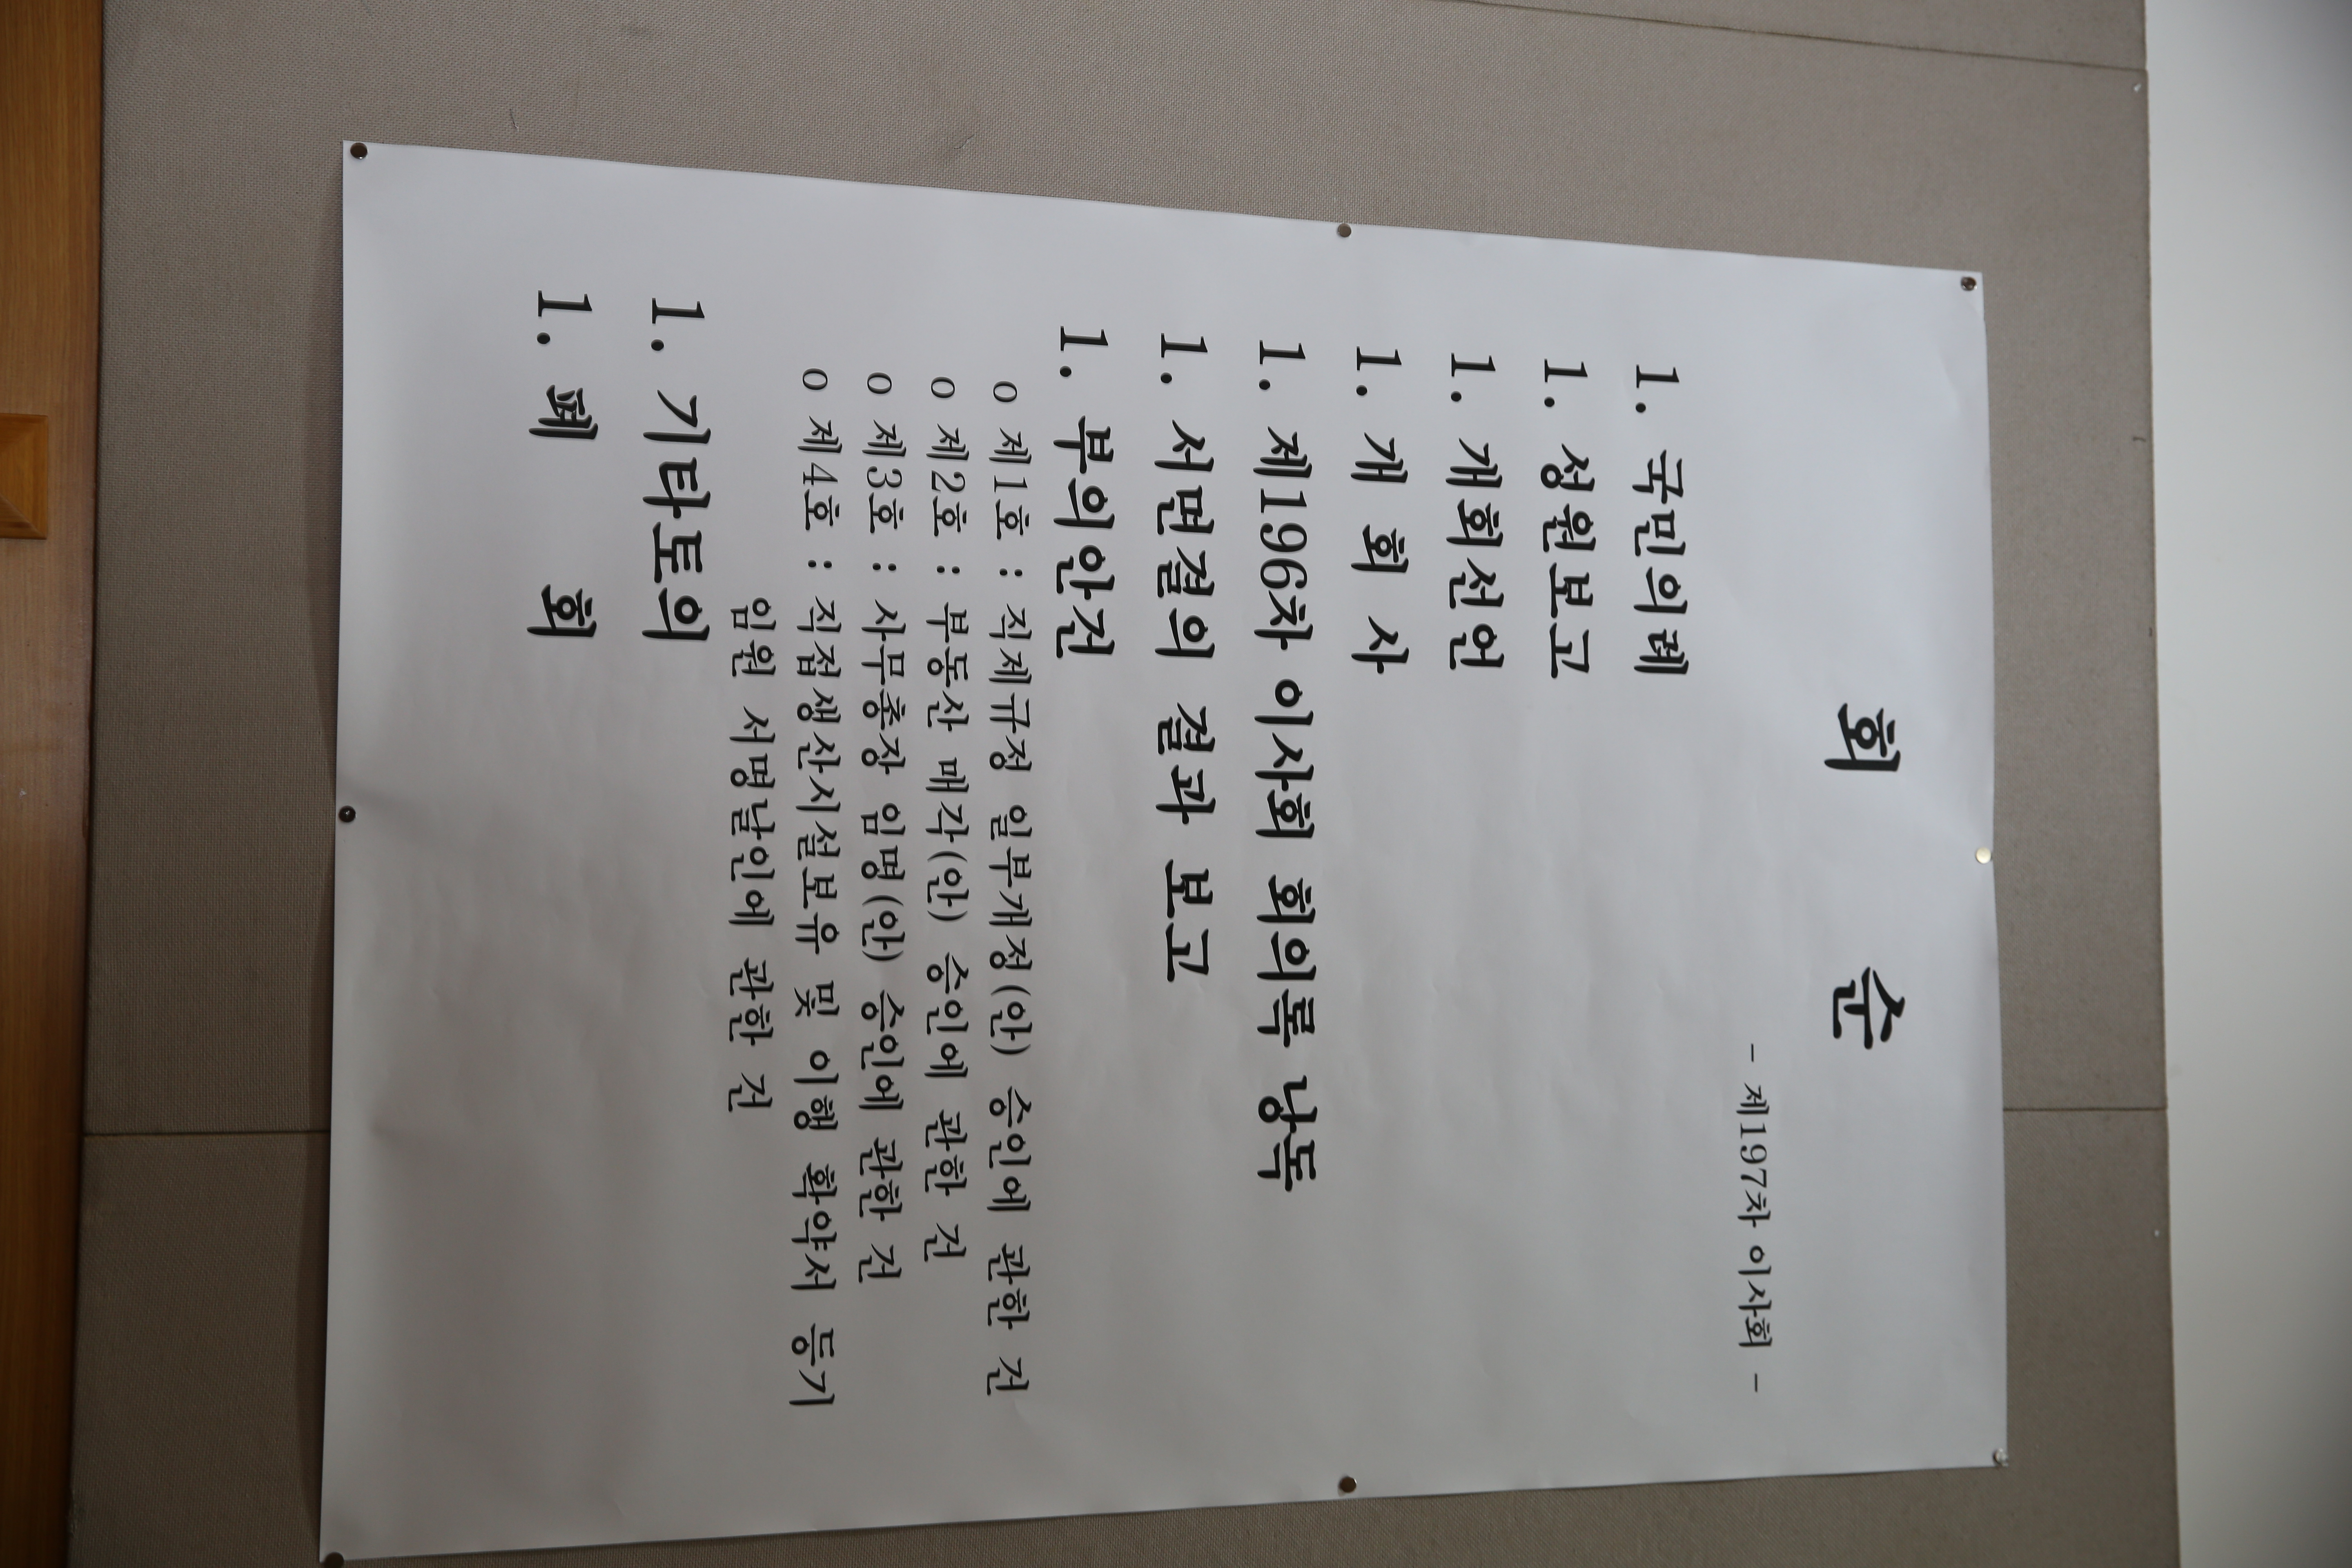 회 순
- 제197차 이사회 -
1. 국민의례
1. 성원보고
1. 개회선언
1. 개 회 사
1. 제196차 이사회 회의록 낭독
1. 서면결의 결과 보고
1. 부의안건
o 제1호 : 직제규정 일부개정(안) 승인에 관한 건
o 제2호 : 부동산 매각(안) 승인에 관한 건
o 제3호 : 사무총장 임명(안) 승인에 관한 건
o 제4호 : 직접생산시설보유 및 이행 확약서 등기
임원 서명날인에 관한 건
1. 기타토의
1. 폐 회